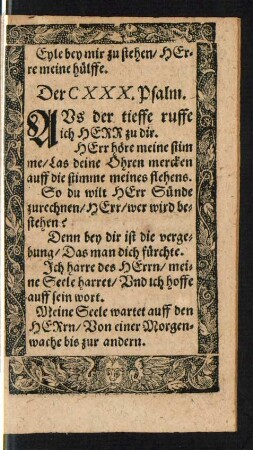 Eyle bey mir zu stehen/HEr-
re meine hülffe.
Der CXXX. Psalm.
AUs der tieffe ruffe
ich HERR zu dir.
HErr höre meine stim
me/Las deine Öhren mercken
auff die stimme meines flehens.
So du wilt HErr Sünde
zurechnen/HErr/wer wird be-
stehen?
Denn bey dir ist die verge-
bung/Das man dich fürchte.
Ich harre des HErrn/mei-
ne Seele harret/Vnd ich hoffe
auff sein wort.
Meine Seele wartet auff den
HERrn/Von einer Morgen-
wache bis zur andern.